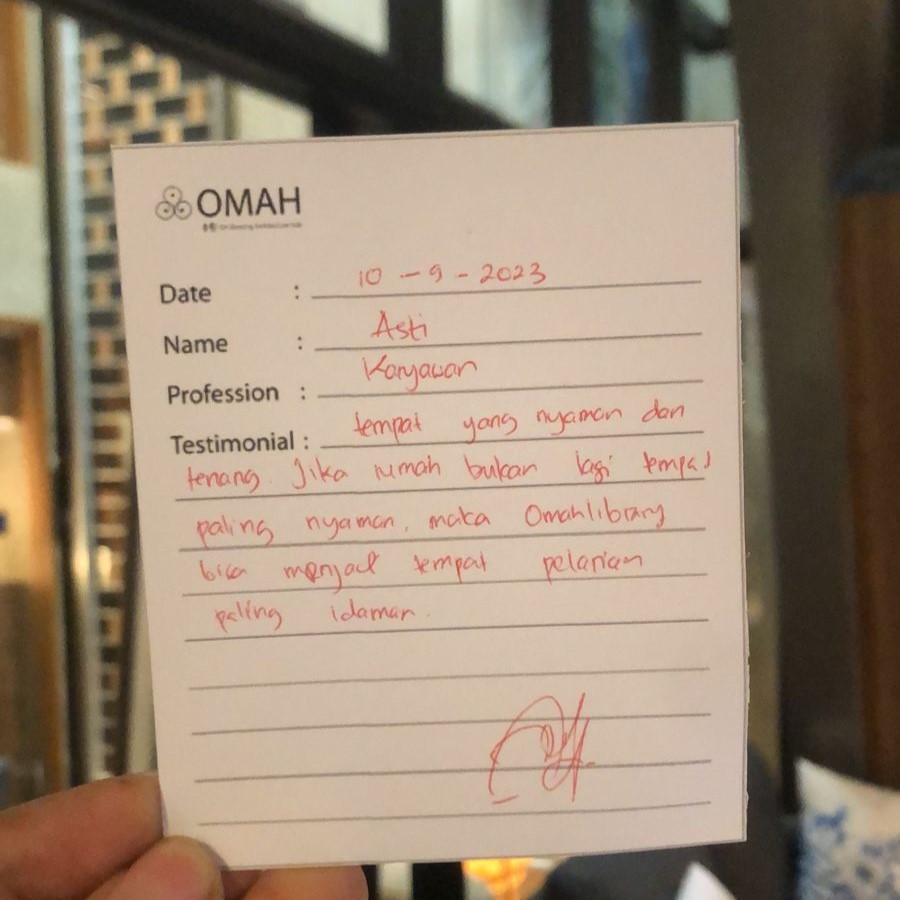 OMAH
Date : 10 - 9 - 2023
Name : Asti
Profession : Karyawan
Testimonial : tempat yang nyaman dan
tenang. Jika rumah bukan lagi tempat
paling nyaman, maka Omahlibrary
bisa menjadi tempat pelarian
paling idaman.